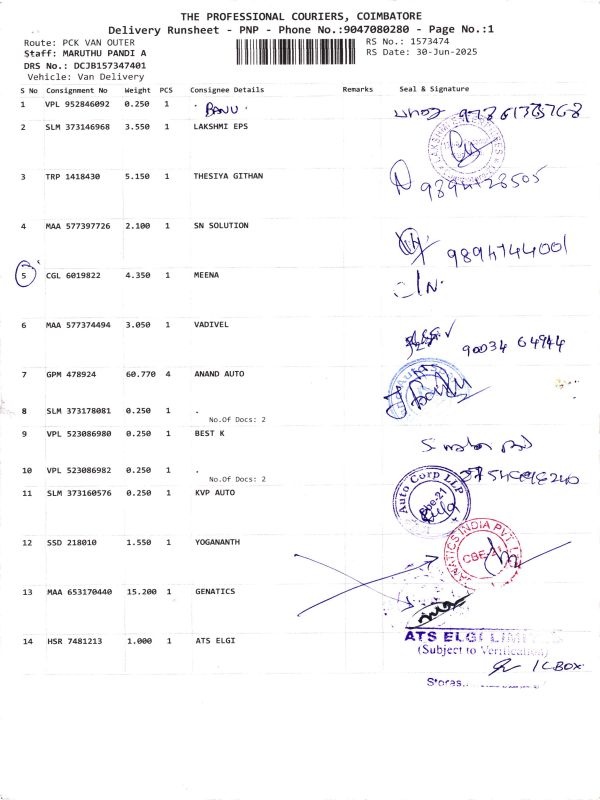 THE PROFESSIONAL COURIERS, COIMBATORE
Delivery Runsheet - PNP - Phone No.:9047080280 - Page No.:1
Route: PCK VAN OUTER
RS No.: 1573474
Staff: MARUTHU PANDI A
RS Date: 30-Jun-2025
DRS No.: DCJB157347401
Vehicle: Van Delivery
S No Consignment No Weight PCS Consignee Details Remarks Seal & Signature
1 VPL 952846092 0.250 1 . BANU .
2 SLM 373146968 3.550 1 LAKSHMI EPS
3 TRP 1418430 5.150 1 THESIYA GITHAN
9894128505
4 MAA 577397726 2.100 1 SN SOLUTION
9894744001
5 CGL 6019822 4.350 1 MEENA
6 MAA 577374494 3.050 1 VADIVEL
90034 64944
7 GPM 478924 60.770 4 ANAND AUTO
8 SLM 373178081 0.250 1 .
No.Of Docs: 2
9 VPL 523086980 0.250 1 BEST K
10 VPL 523086982 0.250 1 .
No.Of Docs: 2
11 SLM 373160576 0.250 1 KVP AUTO
Auto Corp LLP
Cbe-21
12 SSD 218010 1.550 1 YOGANANTH
INDIA PVT. L
CBE-21
13 MAA 653170440 15.200 1 GENATICS
14 HSR 7481213 1.000 1 ATS ELGI
ATS ELGI LIMITED
(Subject to Verification)
1 CBOX
Stores